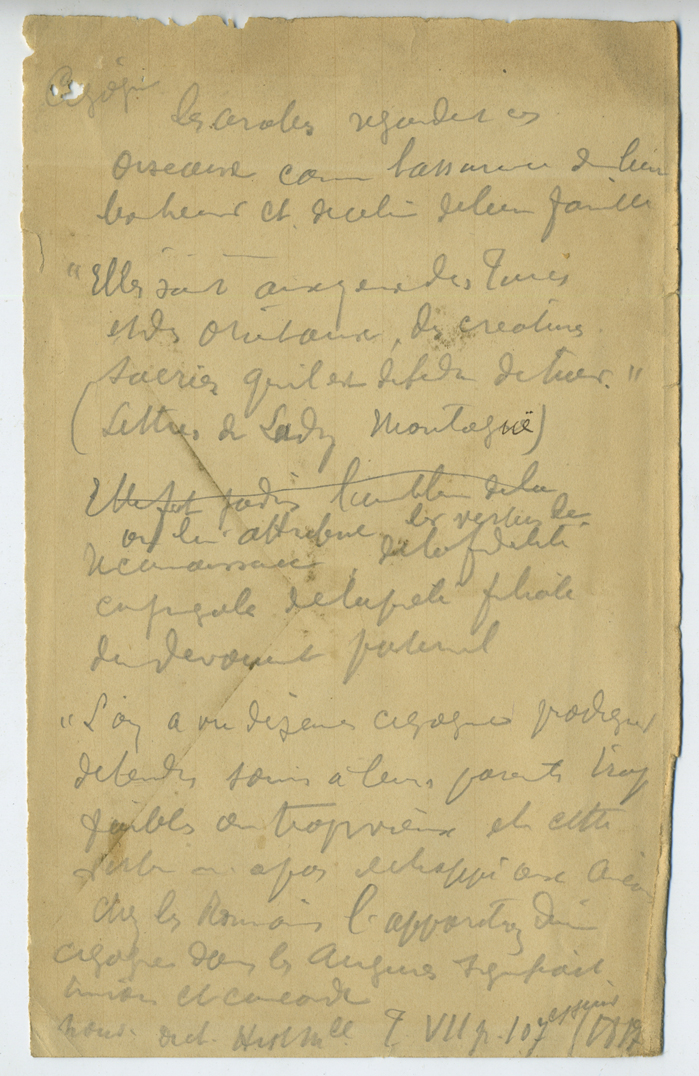 Cigogne
Les arabes regardent ces
oiseaux comme l'assurance de leur
bonheur et de celui de leur famille
"Elles sont aux yeux des Turcs
et des Orientaux, des creatures
sacrées qu'il est defendu de tuer."
(Lettres de Lady Montague)
Elle fut jadis l'embleme de la
on lui attribue les vertus de
reconnaissance, de la fidelité
conjugale de la pieté filiale
du devouement paternel
"L'on a vu de jeunes cigognes prodiguer
de tendres soins à leurs parents trop
faibles ou trop vieux et cette
vertu n'a pas echappé aux
chez les Romains l'apparition d'une
cigogne dans les Augures signifiait
union et concorde
nouv. dict. Hist Nlle T VII p. 107 et suiv